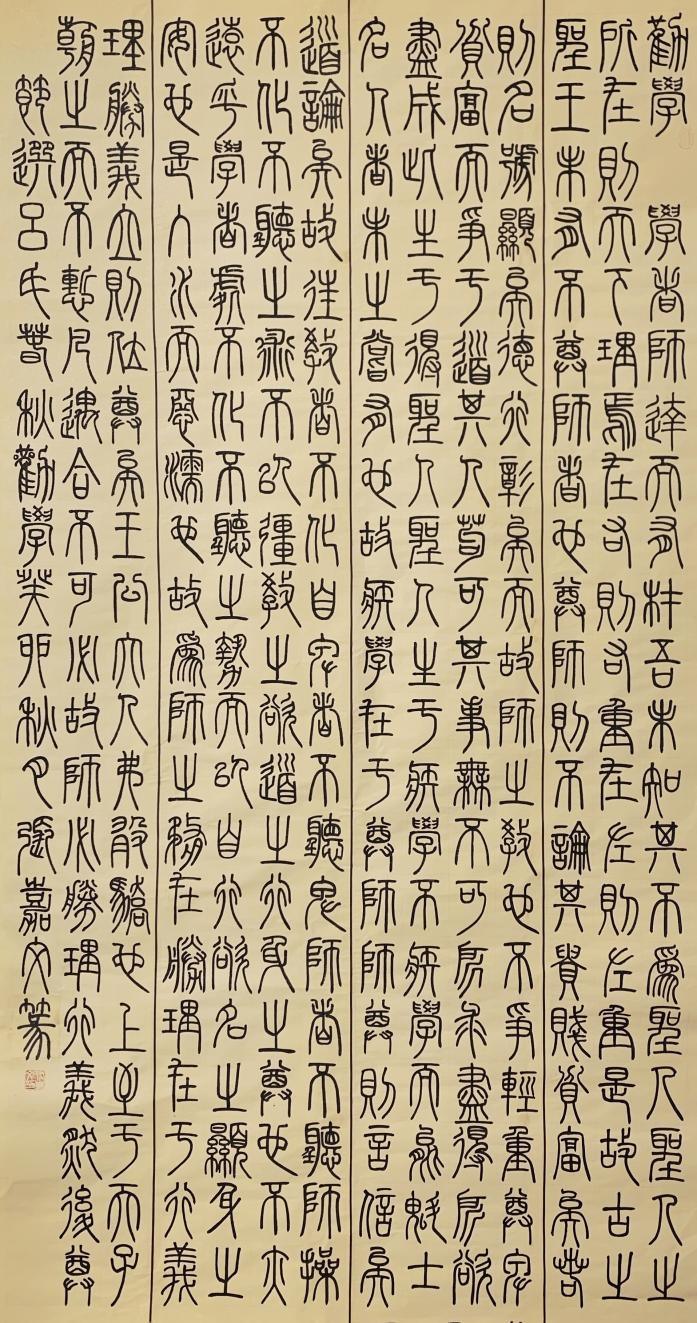 勸學 學者師達而有材吾未知其不為聖人聖人之
所在則天下理焉在右則右重在左則左重是故古之
聖王未有不尊師者也尊師則不論其貴賤貧富矣若
則名號顯矣德行彰矣而故師之教也不爭輕重尊卑
貧富而爭于道其人苟可其事無不可所求盡得所欲
盡成此生于得聖人聖人生于疾學不疾學而為魁士
名人者未之嘗有也故疾學在于尊師師尊則言信矣
道論矣故往教者不化自卑者不聽卑師者不聽師操
不化不聽之術不以彊教之欲道之行身之尊也不亦
遠乎學者處不化不聽之勢而以自行欲名之顯身之
安也是入水而惡濡也故為師之務在勝理在于行義
理勝義立則位尊矣王公大人弗敢驕也上至于天子
朝之而不慙凡遇合不可必故師必勝理行義然後尊
節選呂氏春秋勸學癸卯秋月張嘉文篆